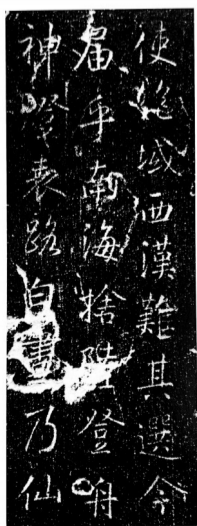 使絶域西漢難其選今
届乎南海捨陸登舟
神表路白晝乃仙